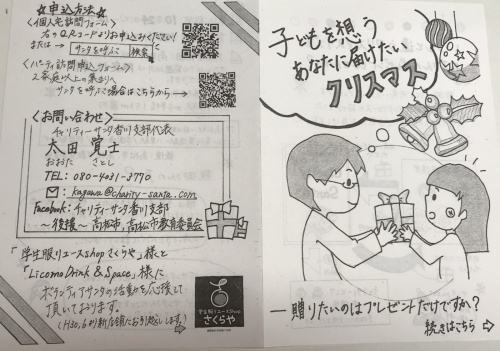 ☆申込方法☆
〈個人宅訪問フォーム〉
右のQRコードよりお申込みください!
または→ サンタを呼ぶ 検索
〈パーティ訪問申込フォーム〉
2家庭以上の集まりへ
サンタを呼ぶ場合はこちらから→
〈お問い合わせ〉
チャリティーサンタ香川支部代表
太田 覚士
おおた さとし
TEL: 080-4031-3770
: kagawa@charity-santa.com
Facebook: チャリティーサンタ香川支部
~後援~ 高松市,高松市教育委員会
「学生服リユースshopさくらや」様と
「Licomo Drink & Space」様に
ボランティアサンタの活動を応援して
頂いております。
(H30,6より新店舗にお引越しします!)
学生服リユースShop
さくらや
子どもを想う
あなたに届けたい
クリスマス
―贈りたいのはプレゼントだけですか?
続きはこちら⇨